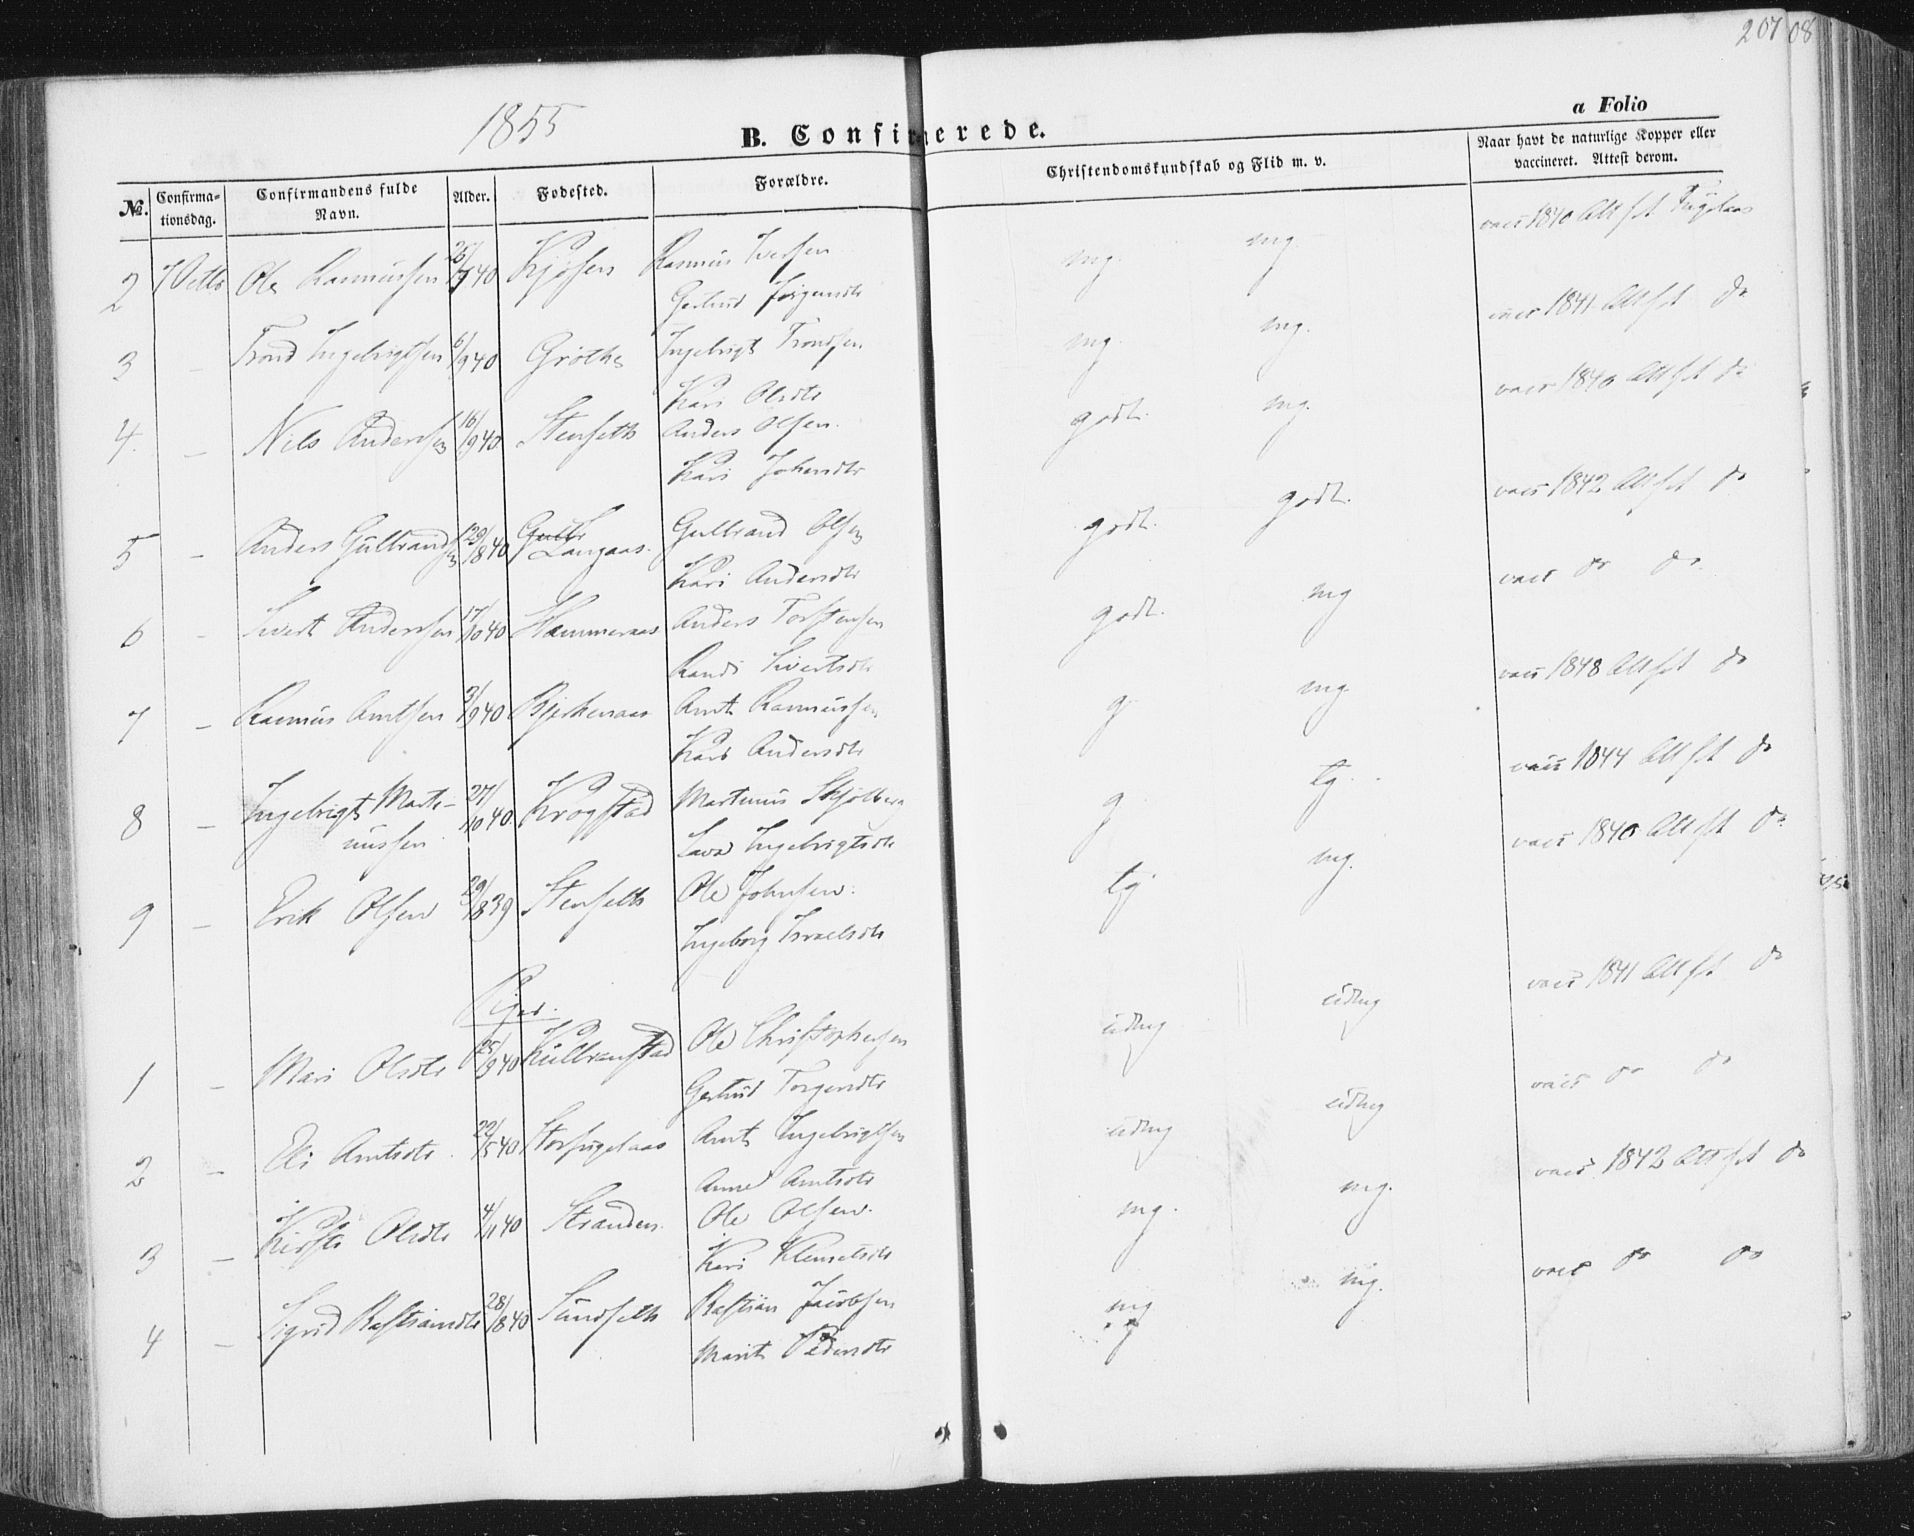 207 08
1855
B. Confirmerede.
a Folio
№. Confirmationsdag. Confirmandens fulde Navn. Alder. Fødested. Forældre. Christendomskundskab og Flid m. v. Naar havt de naturlige Kopper eller vaccineret. Attest derom.
2 7 Octb Ole Rasmussen 40 Kjøsen Rasmus Iversen mg. mg. vacc 1840 Att fst Fuglaas
Gertrud Jørgensdtr
3 – Trond Ingebrigtsen 6/9 40 Grøthe Ingebrigt Trondsen mg. mg. vacc 1841 Att fst do
Kari Olsdtr
4. – Nils Andersen 16/9 40 Stenseth Anders Olsen godt. mg. vacc 1840 Att fst do
Kari Johnsdtr
5 – Anders Gulbrandsen 29/8 40 Langaas. Gulbrand Olsen godt. godt. vacc 1842 Att fst do
Kari Andersdtr
6 – Sivert Andersen 17/10 40 Hammeraas Anders Torstensen godt. mg vacc do do
Randi Sivertsdtr
7 – Rasmus Arntsen 3/9 40 Bjerkenaas Arnt Rasmussen g mg. vacc 1848 Att fst do
Kari Andersdtr
8 – Ingebrigt Marti- 27/10 40 Krogstad Martinus Skjølberg g tg. vacc 1844 Att fst do
nussen Ingebrigtsdtr
9 – Erik Olsen 29/8 39 Stenseth Ole Johnsen. tg mg. vacc 1840 Att fst do
Ingeborg Israelsdtr
Piger.
1 – Mari Olsdtr 25/9 40 Ole Christophersen udmg udmg vacc 1841 Att fst do
Gertrud Torgersdtr
2 – Eli Arntsdtr. 22/5 40 Storfuglaas Arnt Ingebrigtsen udmg udmg vacc do do
Anne Arntsdtr
3 – Kirsti Olsdtr 4/11 40 Stranden. Ole Olsen. mg. mg. vacc 1842 Att fst do
Kari Klemetsdtr
4 – Sigrid Bastiansdtr 28/8 40 Sundseth Bastian Jacobsen mg mg. vacc do do
Marit Pedersdtr